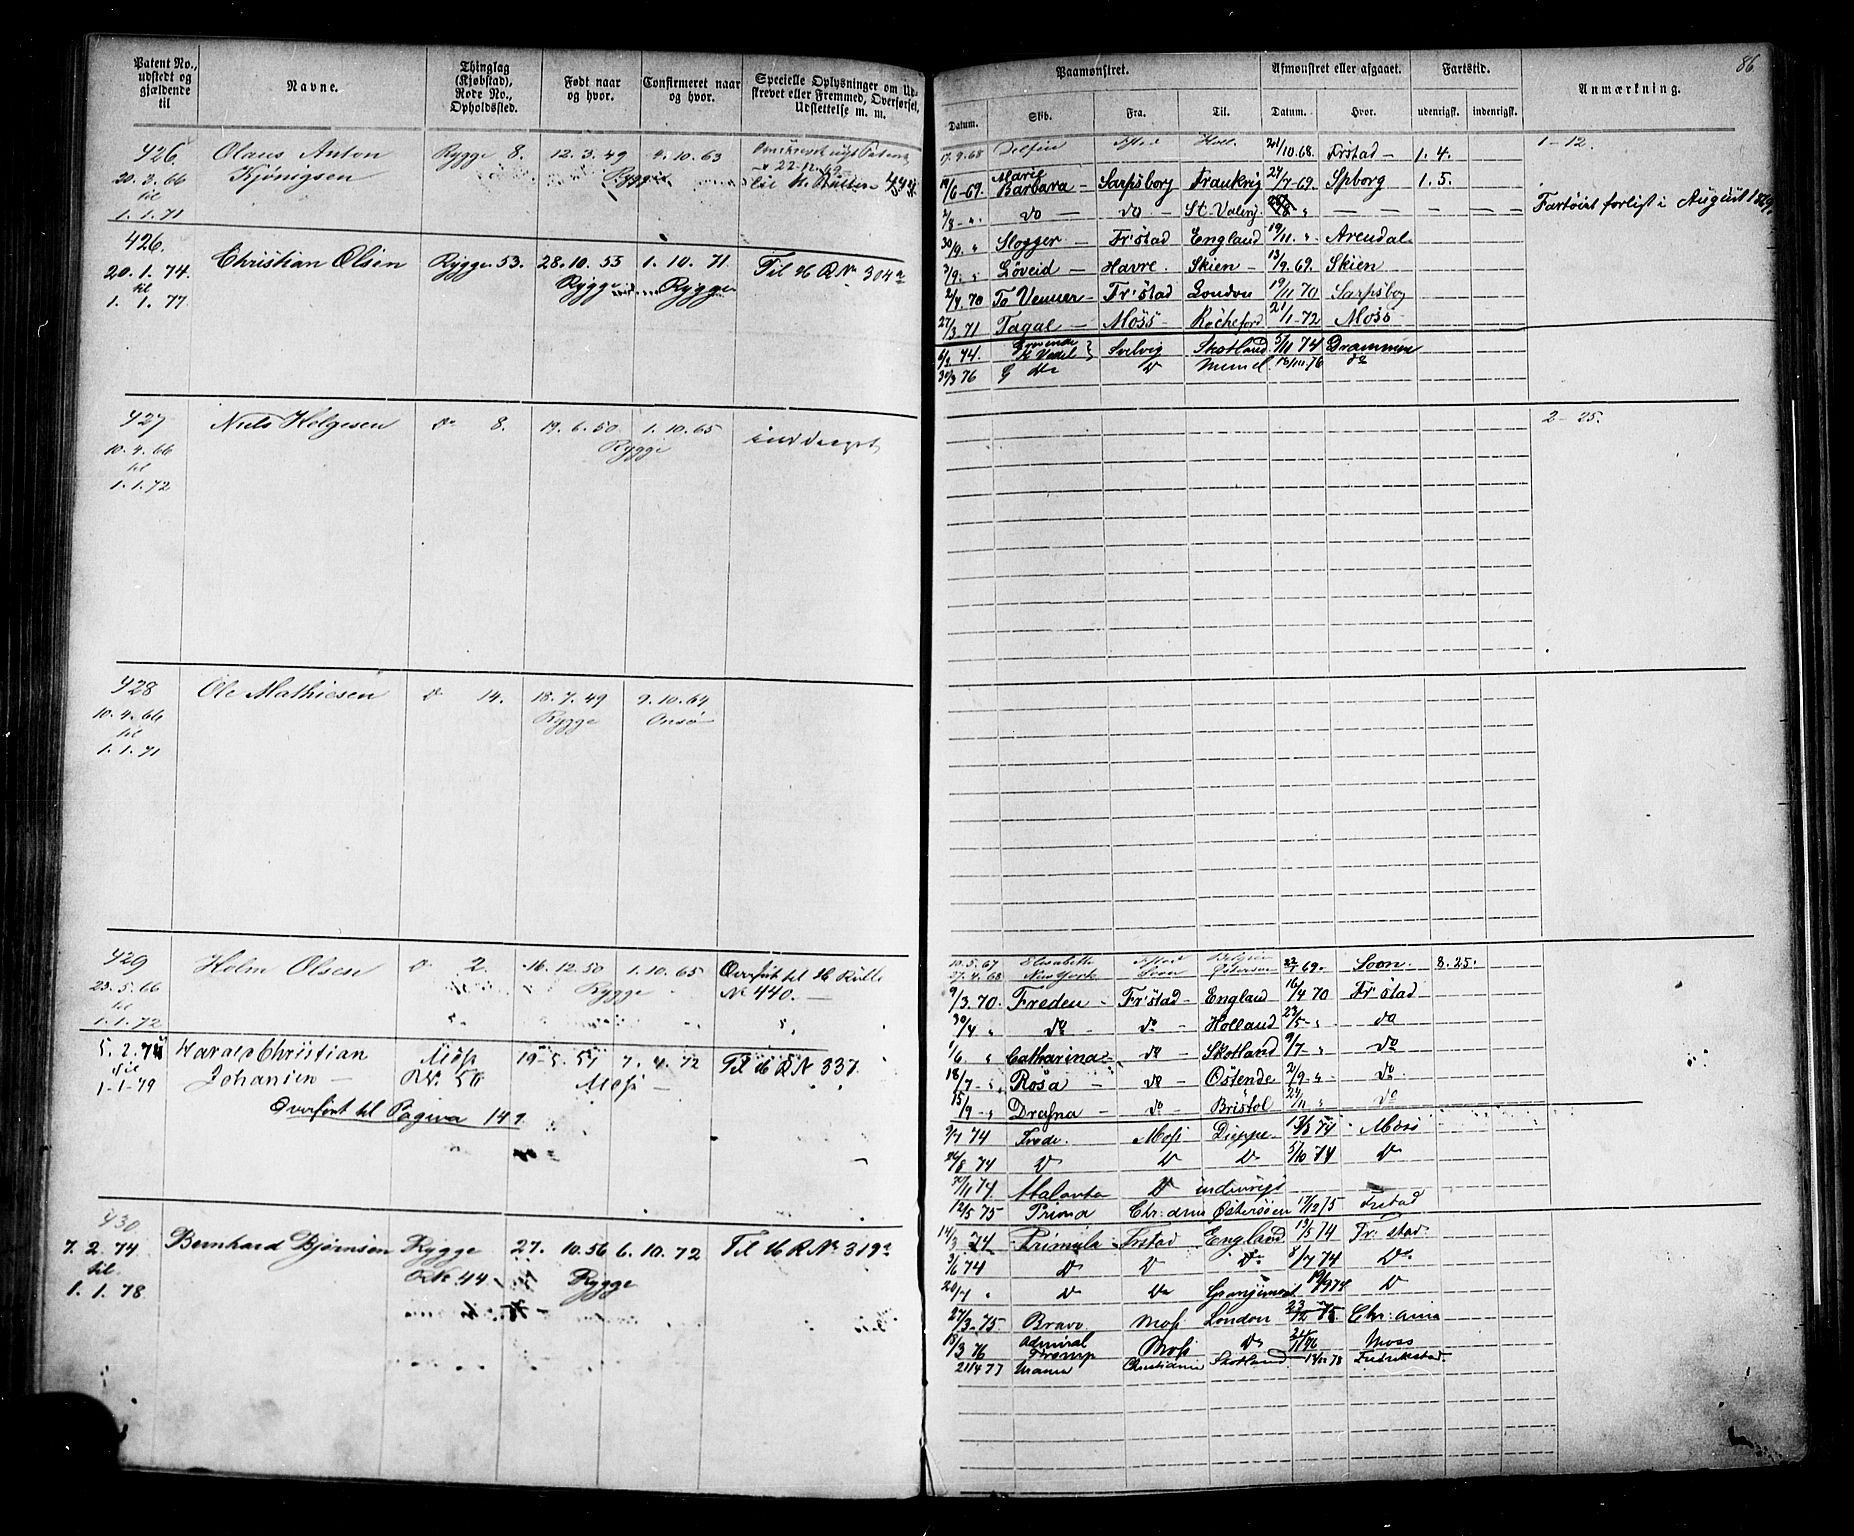 86
Patent No., udstedt og gjældende til
Navne.
Thinglag (Kjøbstad), Rode No., Opholdssted.
Født naar og hvor.
Confirmeret naar og hvor.
Specielle Oplysninger om Udskrevet eller Fremmed, Overførsel, Udslettelse m. m.
Paamønstret.
Afmønstret eller afgaaet.
Fartstid.
Anmærkning.
Datum. Skib. Fra. Til. Datum. Hvor. udenrigsk. indenrigsk.
426 Olaus Anton Rygge 8. 12.3.49 4.10.63
20.3.66 Kjönigsen Rygge
til
1.1.71
426. Christian Olsen Rygge 53. 28.10.55 1.10.71. Til H R No 304a
20.1.74. Rygge Rygge
til
1.1.77
427 Niels Helgesen Do 8. 19.6.50 1.10.65 inddraget
10.4.66 Rygge
til
1.1.72
428 Ole Mathiesen Do 14. 18.7.49 9.10.64
10.4.66 Rygge Onsø
til
1.1.71
429 Holm Olsen Do 2. 16.12.50 1.10.65 Overført til H Rulle
23.5.66 Rygge No 440.
til
1.1.72
5.2.74 Christian Moss 19-5.57 7.4.72 Til H R N 337.
til Johansen Moss
1-1-79
Overført til Pagina 149
430
7.2.74 Bernhard Bjørnsen Rygge 27.10.56 6.10.72 Til H R No 319a
til R No 44 Rygge
1.1.78
17.9.68 Delfin Fstad Hull 21/10.68. Frstad 1.4. 1-12.
19/6-69. Marie Barbara Sarpsborg Frankrig 24/7-69. Spborg 1.5.
do do St. Valery Fartøiet forligt i August
30/9. Slogger Fr:stad England 19/11. Arendal
3/9. Løveid Havre. Skien 13/9.69. Skien
2/4.70 To Venner Fr:stad London 19/11 70 Sarpsborg
27/3.71 Tagal Moss Rocheford 2/1-72 Moss
6/4.74. Svelvig Skotland 5/11 74 Drammen
30/3 76 Do Do Memel Do
2-25.
10.5.67 Elisabeth Fstad Belgien
27.4.68 New York Soon Østersøen 69. Soon. 8.25.
9/3.70. Freden Fr:stad England 16/4 70 Fr:stad
30/4 do do Holland 23/5 do
1/6. Catharina do Skotland 9/7 do
18/7 Rosa do Ostende 2/9 do
15/9 Drafna do Bristol do
9/7 74 Frede. Moss Dieppe 74 Moss
26/8 74 Do Do Do 5/10 74 Do
74 Do indenrigs
12/5 75 Prima Chr:ania Østersøen 17/12/75 Frstad
14/3 74 Primula Frstad England 13/5 74 Fr:stad
3/6 74 Do Do Do 8/7 74 Do
20/7 Do Do 19/9 74 Do
27/3.75 Bravo Moss London 75 Chr:ania
18/3 76 Admiral Tromp Moss Do 76 Moss
21/4 77 Christiania Skotland 78 Fredrikstad